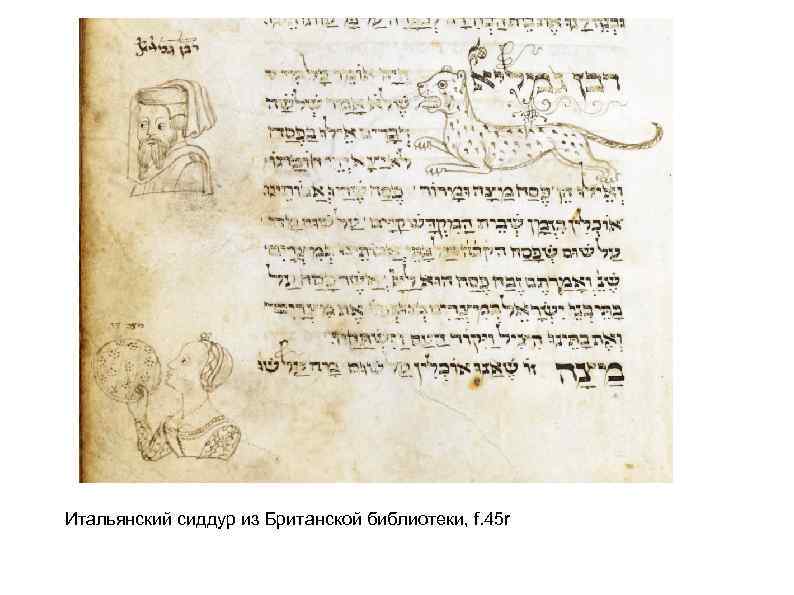 רבן גמליאל
רבן גמליאל היה אומר כל מי
שלא אמר שלשה
דברים אילו בפסח
לא יצא ידי חובתו
ואילו הן פסח מצה ומרור פסח שהיו אבותינו
אוכלין בזמן שבית המקדש קיים על שום
על שום שפסח על אבותינו במצרים
שנ ואמרתם זבח פסח הוא ליי אשר פסח על
בתי בני ישראל במצרים את מצרים
ואת בתינו הציל ויקוד העם וישתחוו
מצה זו שאנו אוכלין על שום מה על שום
Итальянский сиддур из Британской библиотеки, f.45r